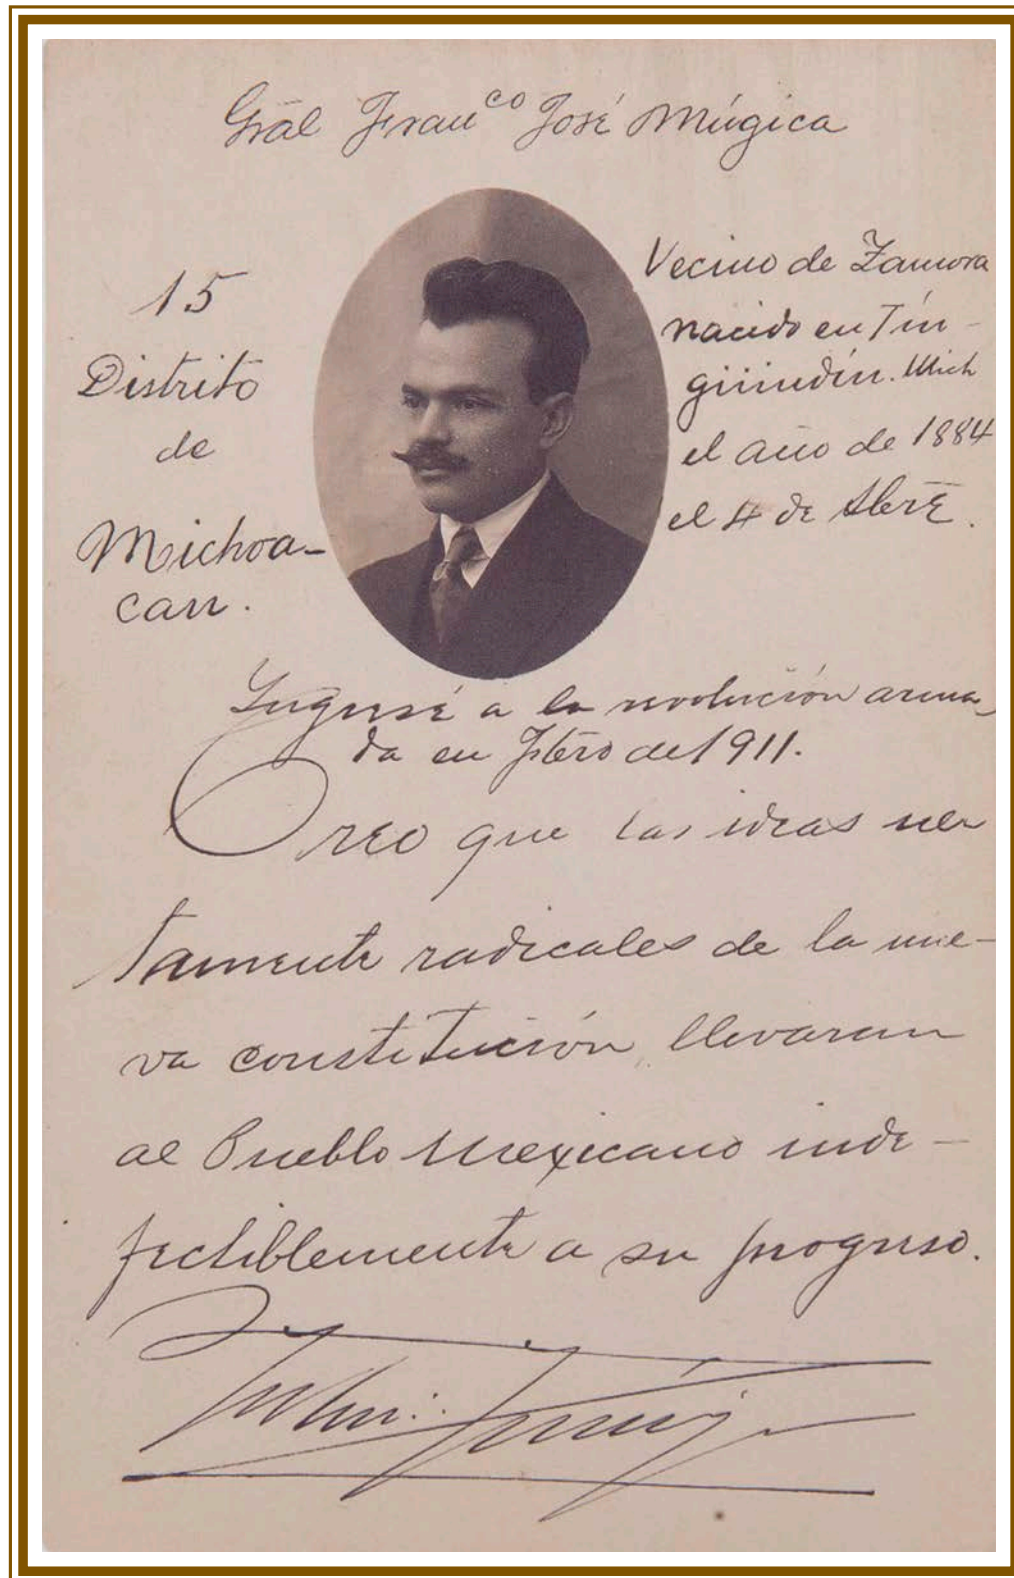 Grāl Franco José Múgica
15
Distrito
de
Michoa-
can.
Vecino de Zamora
nacido en Tin-
güindin. Mich
el año de 1884
el 4 de Sbre.
Ingresé a la revolución arma-
da en Fbro del 1911.
Creo que las ideas ne
tamente radicales de la nue-
va constitución, llevaran
al Pueblo Mexicano inde-
fectiblemente a su progreso.